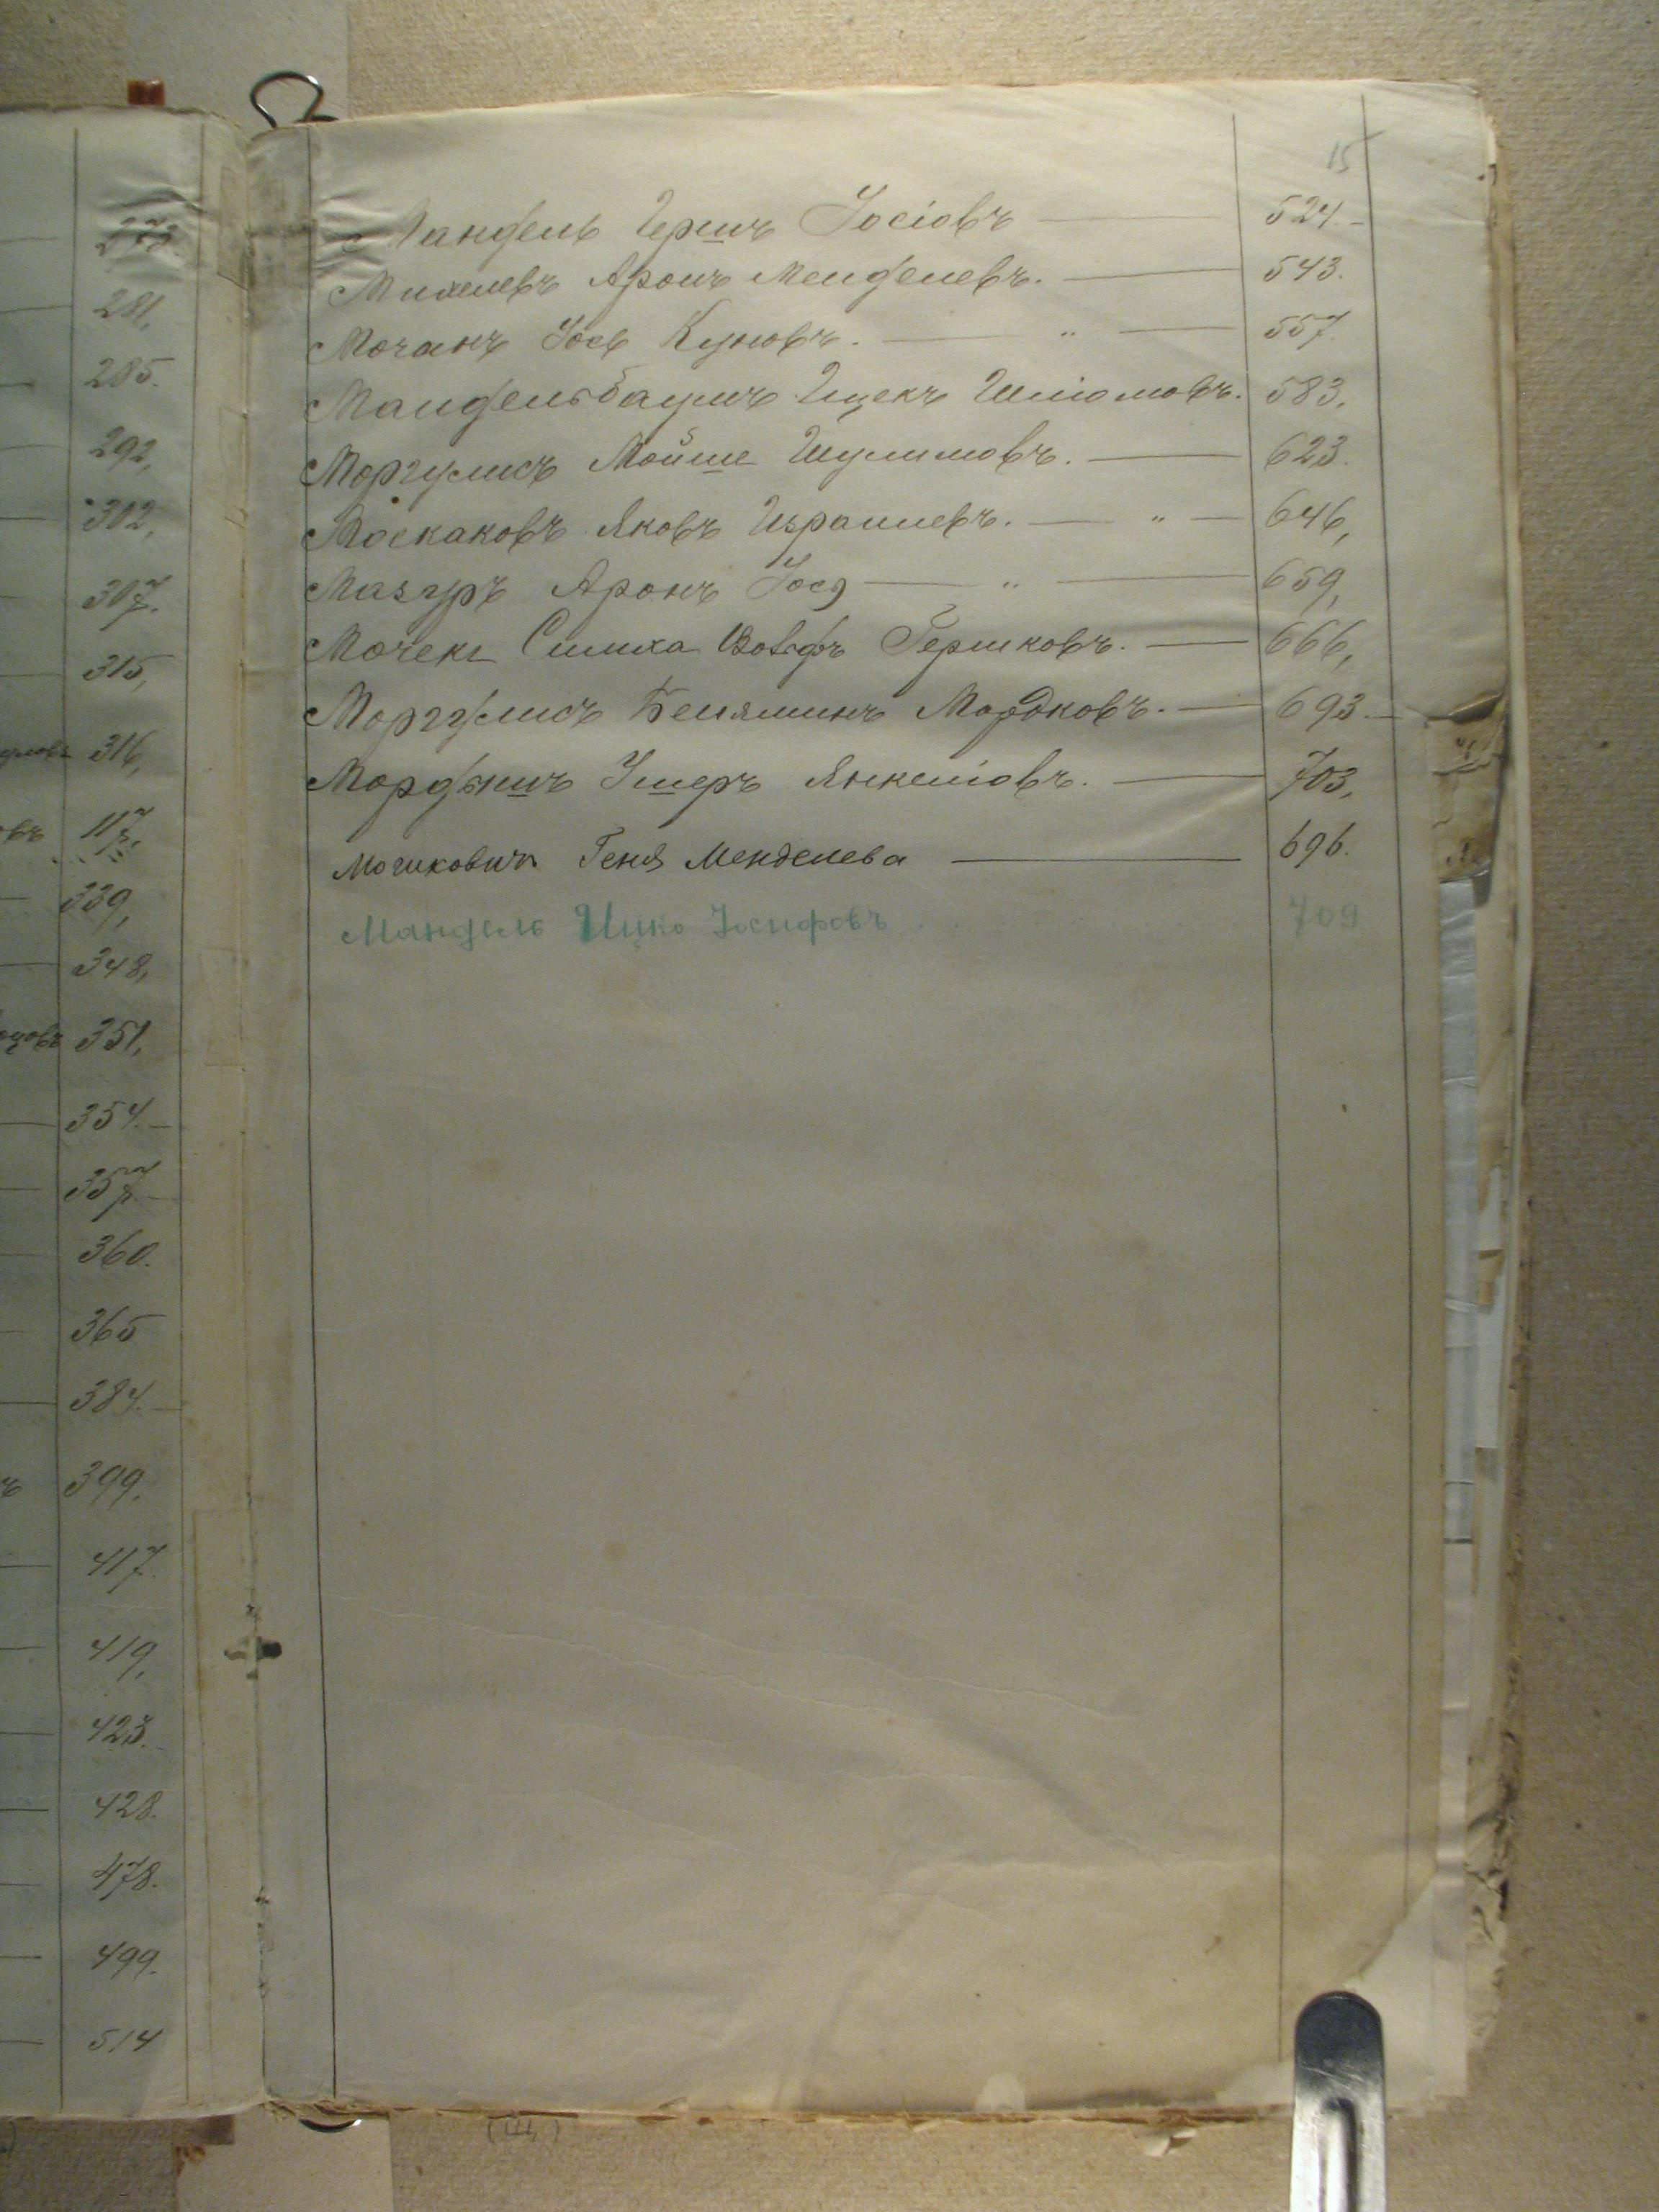 273.
281,
285.
292,
302,
307.
315,
316,
овъ 117.
339,
348,
351,
354.
357
360.
365
384.
399.
417.
419,
423.
428.
478.
499.
514
15
Мандель Гершъ Іосіовъ 524.
Михелевъ Аронъ Менделевъ. 543.
Мочанъ Іосъ Куновъ. " 557.
Мандельбаумъ Ицекъ Шліомовъ. 583.
Моргулисъ Мойше Шулимовъ. 623.
Москаковъ Яковъ Израилевъ. " 646,
Мазуръ Аронъ Іося " 659,
Мочекъ Симха Вольфъ Гершковъ. 666,
Моргулисъ Беняминъ Мордковъ. 693.
Ушеръ Янкеліовъ. 703,
Мошковичъ Геня Менделева 696.
Мандель Ицко Іосифовъ 709